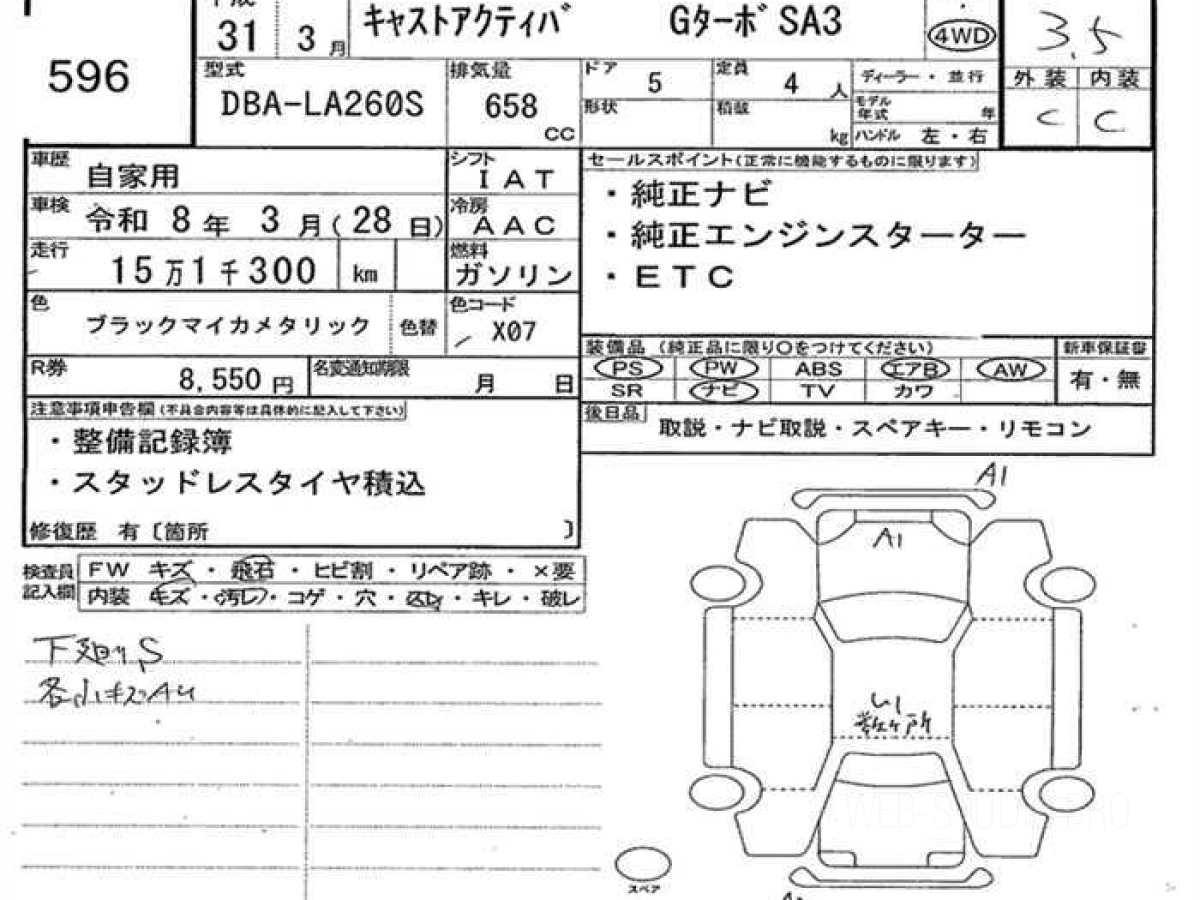 平成
596
31 3月
キャストアクティバ GターボSA3
4WD
3.5
型式 DBA-LA260S
排気量 658 cc
ドア 5
定員 4 人
ディーラー・並行
形状
積載 kg
モデル年式 年
ハンドル 左・右
外装 内装
C C
車歴 自家用
シフト IAT
車検 令和 8年 3月(28日)
冷房 AAC
走行 15万1千300 km
燃料 ガソリン
色 ブラックマイカメタリック 色替
色コード X07
R券 8,550円
名変通知期限 月 日
セールスポイント(正常に機能するものに限ります)
・純正ナビ
・純正エンジンスターター
・ETC
装備品 (純正品に限り〇をつけてください)
新車保証書
PS PW ABS エアB AW
SR ナビ TV カワ
有・無
後日品 取説・ナビ取説・スペアキー・リモコン
注意事項申告欄(不具合内容等は具体的に記入して下さい)
・整備記録簿
・スタッドレスタイヤ積込
修復歴 有〔箇所 〕
検査員記入欄
FW キズ・飛石・ヒビ割・リペア跡・×要
内装 キズ・汚レ・コゲ・穴・・キレ・破レ
下廻りS
各小キズAU
A1
A1
U1
数ヶ所
スペア
WEB-STUDIE.PRO